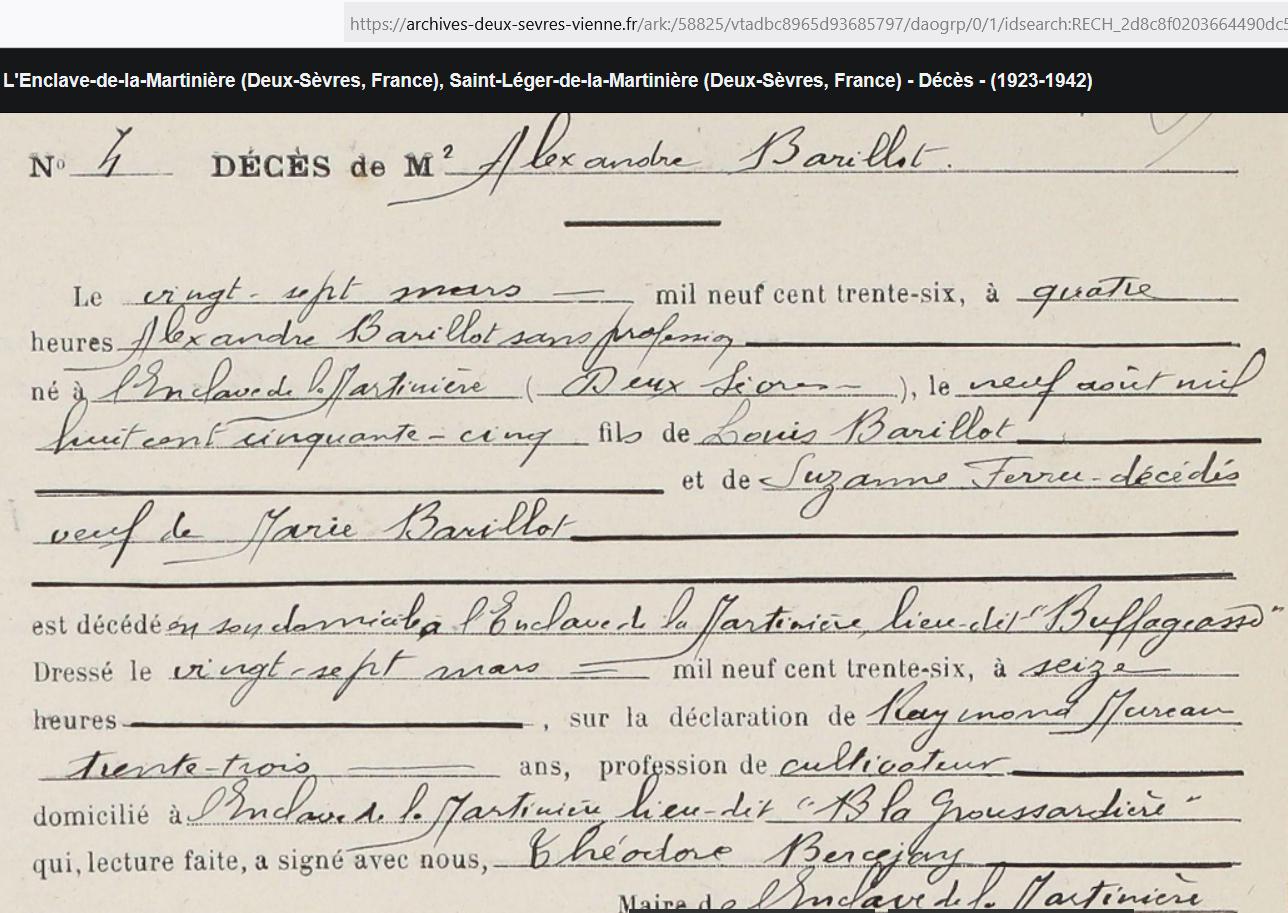 https://archives-deux-sevres-vienne.fr/ark:/58825/vtadbc8965d93685797/daogrp/0/1/idsearch:RECH_2d8c8f0203664490dc5
L'Enclave-de-la-Martinière (Deux-Sèvres, France), Saint-Léger-de-la-Martinière (Deux-Sèvres, France) - Décès - (1923-1942)
No 4 DÉCÈS de M² Alexandre Barillot.
Le vingt-sept mars mil neuf cent trente-six, à quatre
heures Alexandre Barillot sans profession
né à l'Enclave de la Martinière ( Deux Sèvres ), le neuf août mil
huit cent cinquante-cinq fils de Louis Barillot
et de Suzanne Ferru - décédés
veuf de Marie Barillot
est décédé en son domicile à l'Enclave de la Martinière, lieu-dit "Buffageasse"
Dressé le vingt-sept mars mil neuf cent trente-six, à seize
heures , sur la déclaration de Raymond
trente-trois ans, profession de cultivateur
domicilié à l'Enclave de la Martinière lieu-dit " la Groussardière "
qui, lecture faite, a signé avec nous, Théodore
Maire de l'Enclave de la Martinière